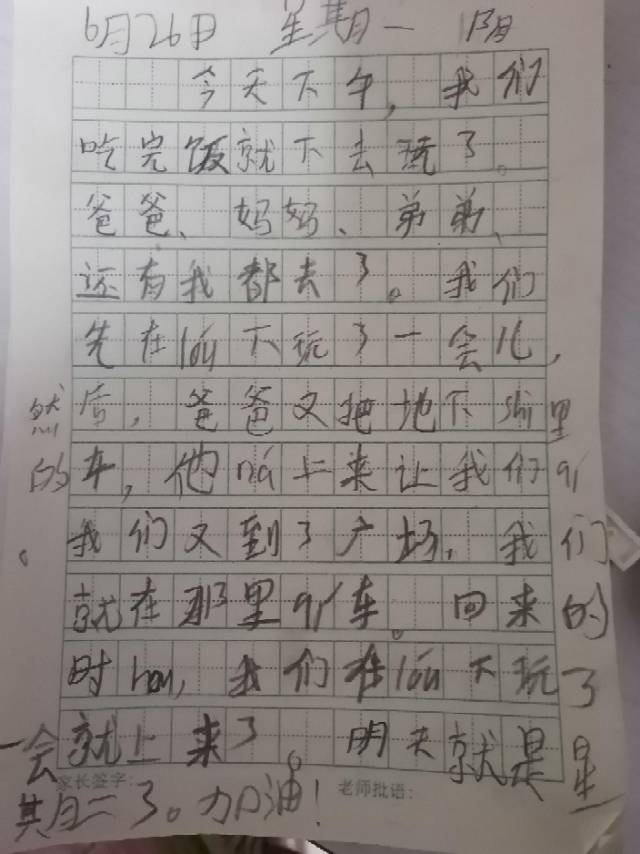 6月26日 星期一 阴
今天下午,我们
吃完饭就下去玩了。
爸爸、妈妈、弟弟、
还有我都去了。我们
先在lóu下玩了一会儿,
然后,爸爸又把地下shì里
的车,他ná上来让我们qí
。我们又到了广场,我们
就在那里qí车。回来的
时hou,我们在lóu下玩了
一会就上来了。明天就是星
期二了。加油!
家长签字: 老师批语: